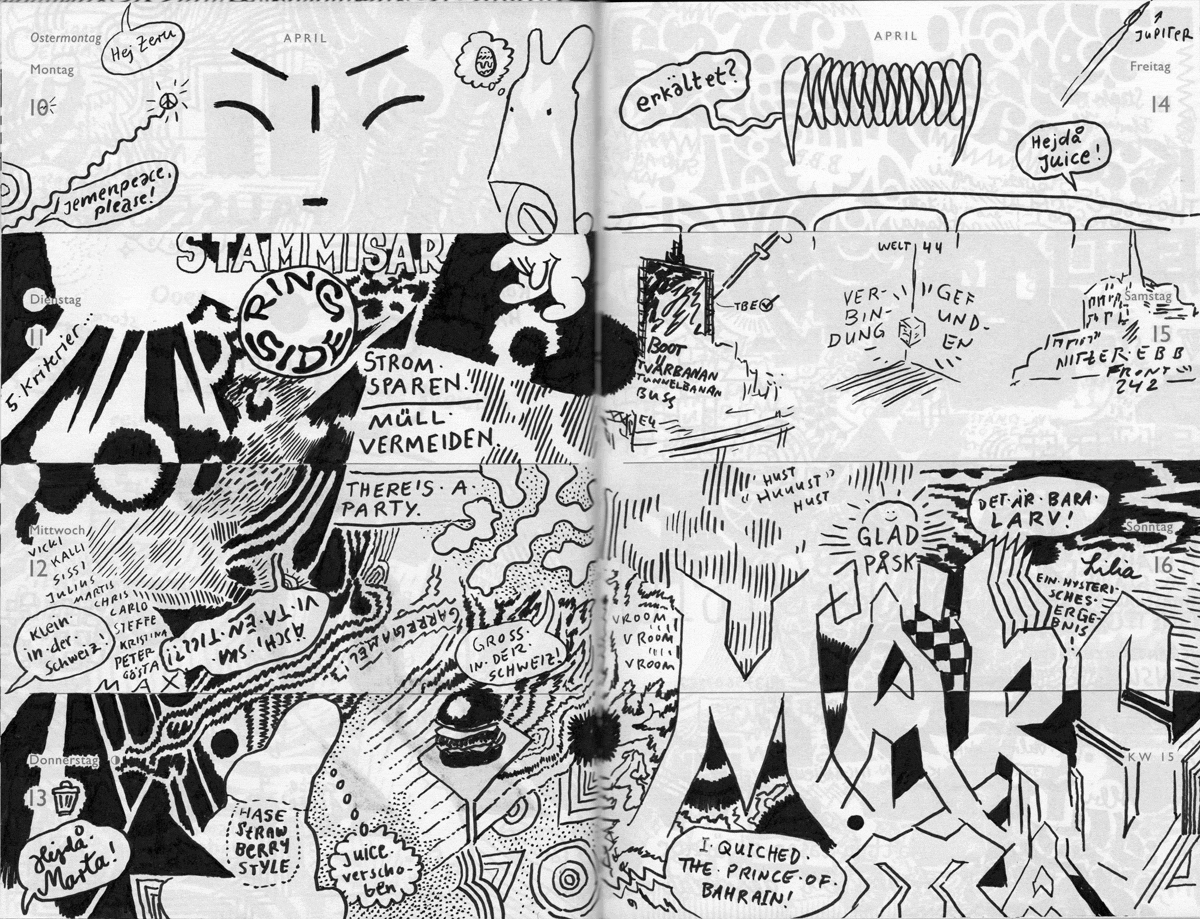 Ostermontag
Hej Zeru
APRIL
Montag
10
Jemenpeace,
please!
STAMMISAR
RINGSIDE
Dienstag
11
5. Kriterier...
STROM.
SPAREN.
MÜLL.
VERMEIDEN.
THERE'S. A.
PARTY.
Mittwoch
12
VICKI
KALLI
SISSI
JULIUS
MARTIS
CHRIS
CARLO
STEFFE
KRISTINA
PETER
GÖSTA
MAX
Klein.
in.der.
Schweiz!
ASCH, SKA
VI. TA. EN. TILL?!
GARRGAMEL!
GROSS.
IN. DER.
SCHWEIZ!
Donnerstag
13
Hejdå.
Marta!
HASE
STRAW
BERRY
STYLE
Juice.
verscho
ben
APRIL
JUPITER
Freitag
14
erkältet?
Hejdå
Juice!
TBE
BOOT
TVÄRBANAN
TUNNELBANAN
BUSS
E4
WELT 44
VER-
BIN-
DUNG
GEF
UND-
EN
Samstag
15
NITZER. EBB
FRONT
242
"HUST
"HUUUST"
HUST
GLAD
PÅSK
DET. ÄR. BARA.
LARV!
Sonntag
16
Lilia
EIN. HYSTERI
SCHES.
ERGE-
BNIS
VROOM
VROOM
VROOM
KW 15
I. QUICHED.
THE. PRINCE. OF.
BAHRAIN!